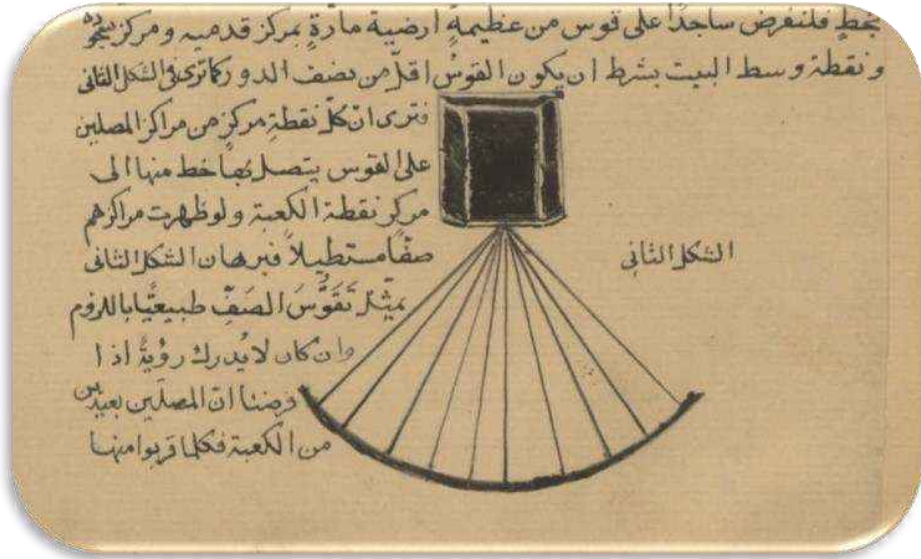 بخطٍ فلنفرض ساجدًا على قوس من عظيمةٍ ارضية مارّةٍ بمركز قدميه ومركز سجوده
ونقطة وسط البيت بشرط ان يكون القوسُ اقلّ من نصف الدور كما ترى فى الشكل الثانى
فترى انّ كلّ نقطةِ مركزٍ من مراكز المصلين
على القوس يتصل بها خط منها الى
مركز نقطة الكعبة ولو ظهرت مراكزهم
صفًّا مستطيلاً فبرهان الشكل الثانى
يمثّل تَقَوُّسَ الصَفِّ طبيعيًّا باللزوم
وان كان لا يُدرك رؤيةً اذا
فرضنا انّ المصلّين بعيدين
من الكعبة فكلما قربوا منها
الشكل الثانى